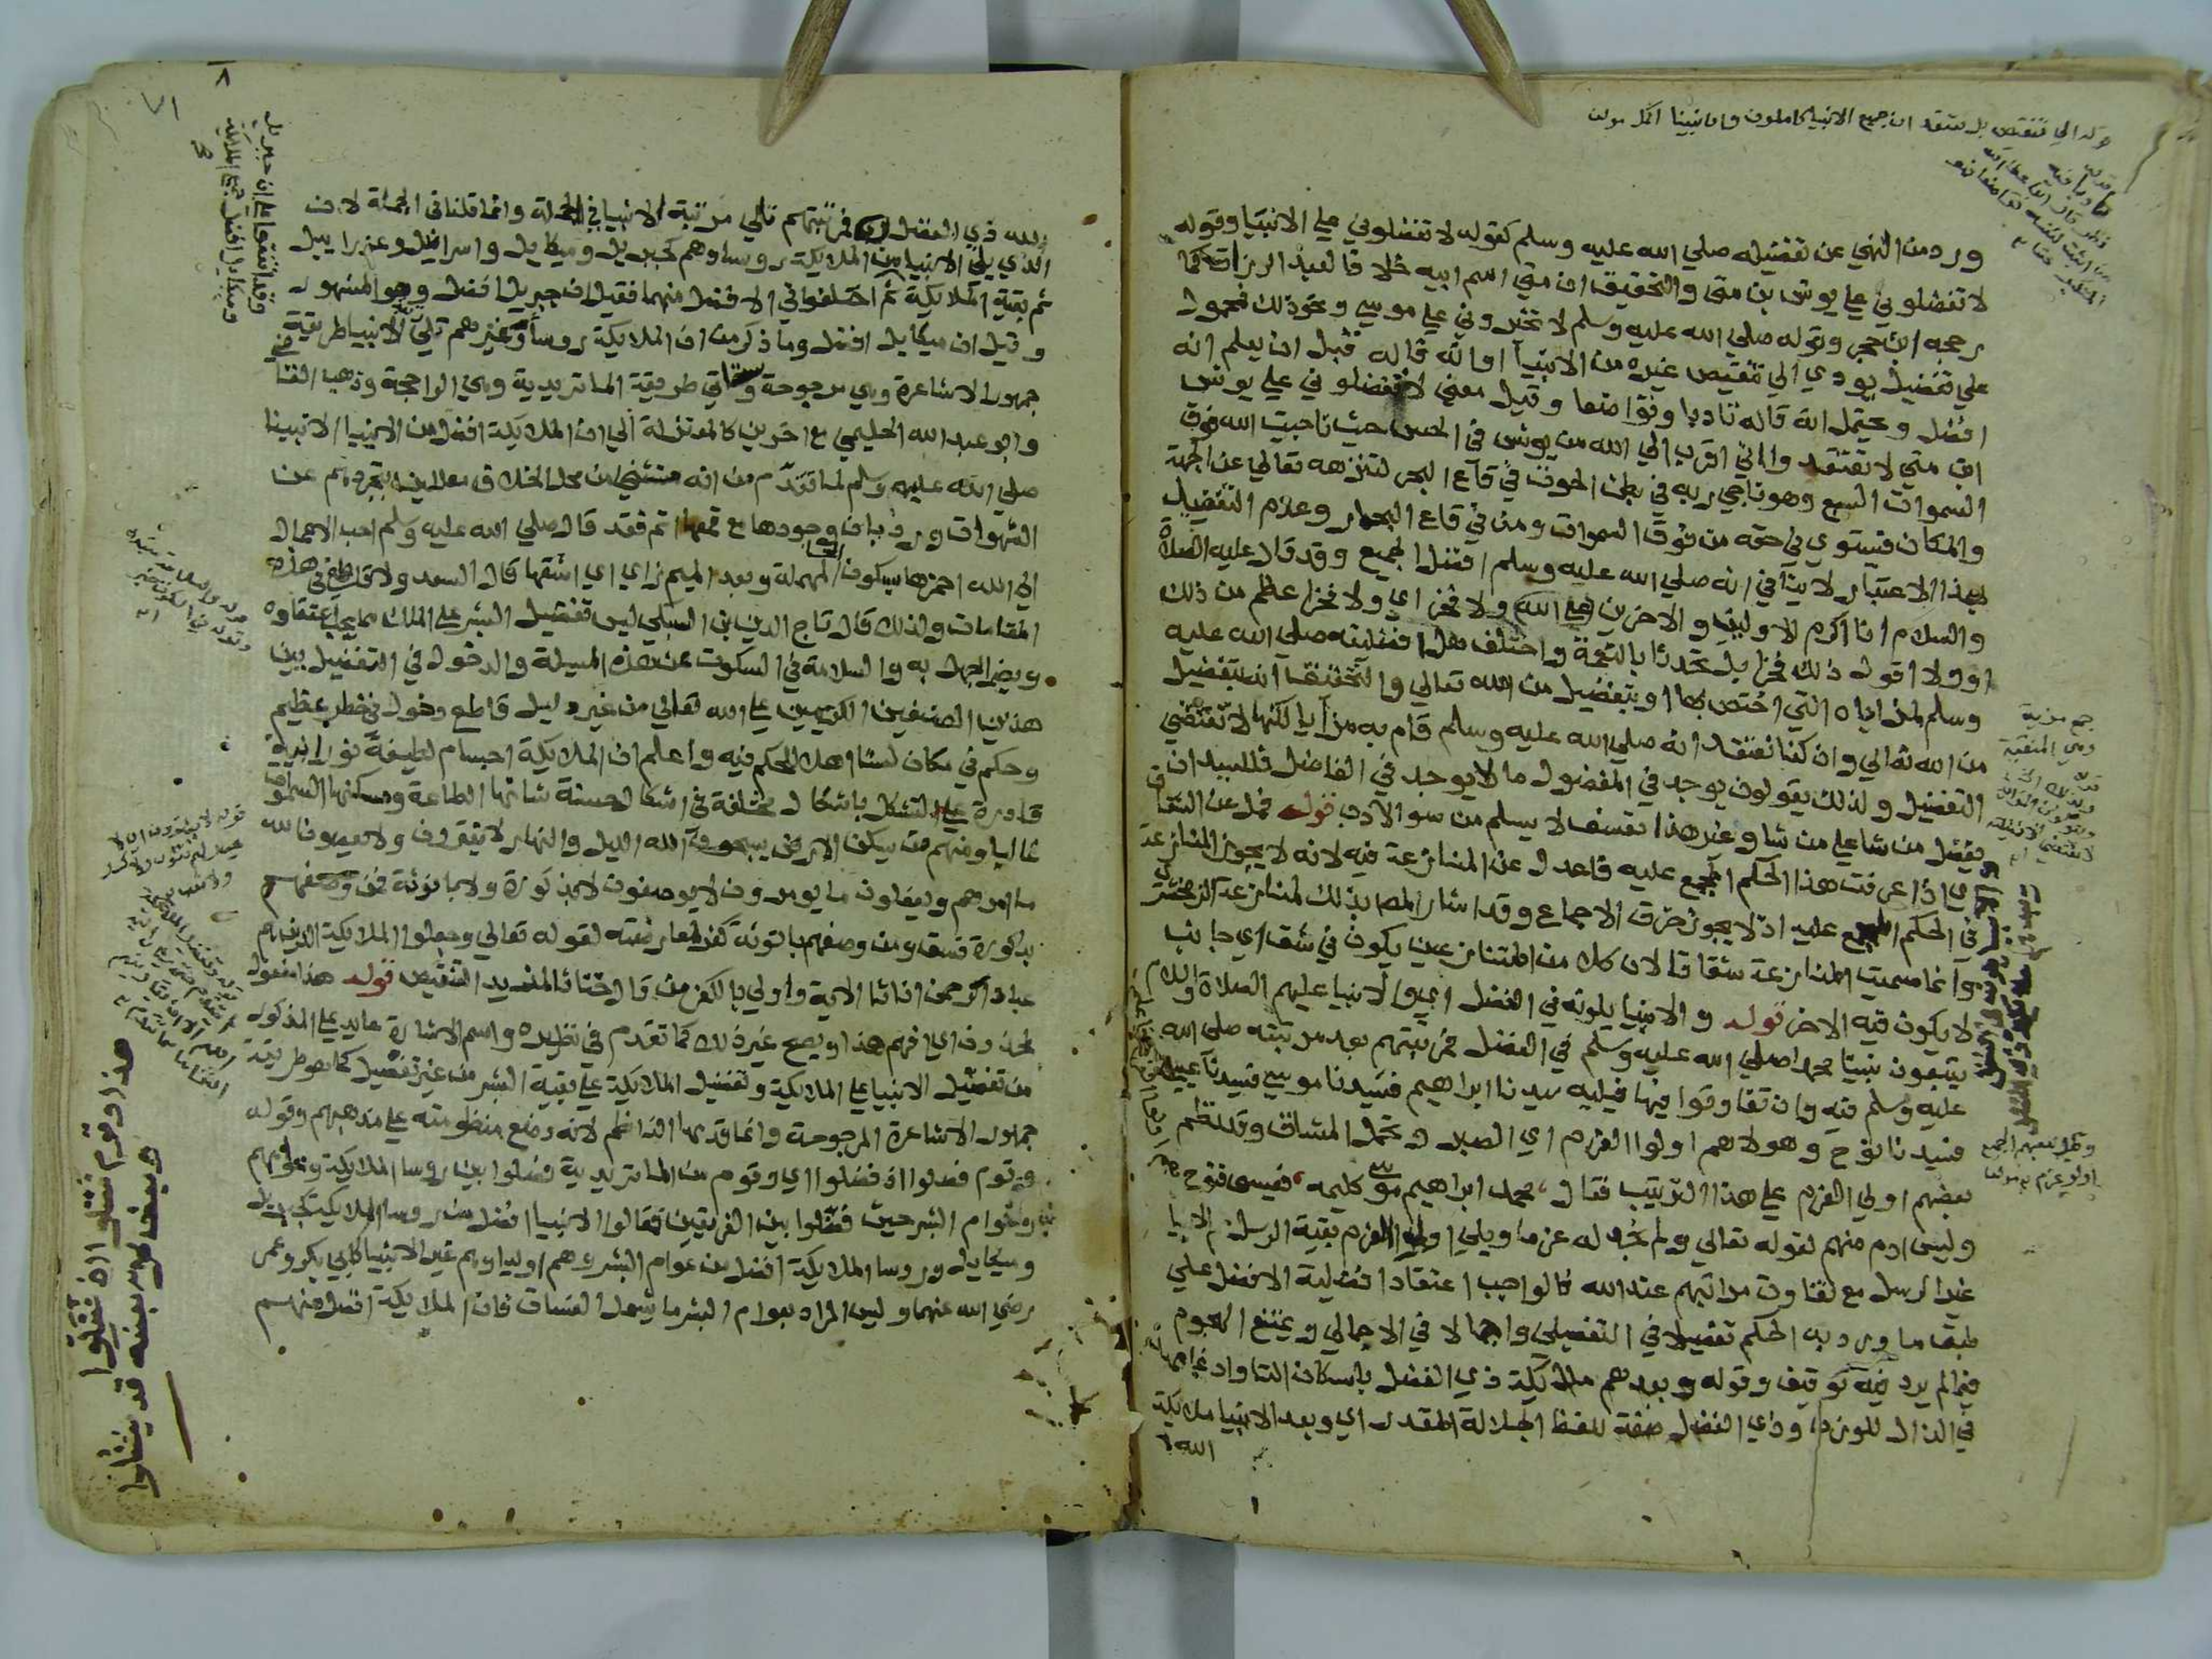 ورد من النهي عن تفضيله صلي الله عليه وسلم كقوله لا تفضلوني علي الانبيا وقوله
لا تفضلوني علي يونس بن متي والتحقيق ان متي اسم ابيه خلافا لعبد الرزاق كما
رجحه ابن حجر وقوله صلي الله عليه وسلم لا تخيروني علي موسي ونحو ذلك فمحمول
علي تفضيل يودي الي تنقيص غيره من الانبيا او انه قاله قبل ان يعلم انه
افضل ويحتمل انه قاله تادبا وتواضعا وقيل معني لا تفضلوني علي يونس
ابن متي لا تعتقدوا اني اقرب الي الله من يونس في الحس حيث ناجيت الله فوق
السموات السبع وهو ناجي ربه في بطن الحوت في قاع البحر لتنزهه تعالي عن الجهة
والمكان فيستوي في حقه من فوق السموات ومن في قاع البحار وعدم التفضيل
بهذا الاعتبار لا ينافي انه صلي الله عليه وسلم افضل الجميع وقد قال عليه الصلاة
والسلام انا اكرم الاولين والاخرين علي الله ولا فخر اي ولا فخر اعظم من ذلك
او ولا اقول ذلك فخرا بل تحدثا بالنعمة واختلف هل افضليته صلي الله عليه
وسلم لمزاياه التي اختص بها او بتفضيل من الله تعالي والتحقيق انه بتفضيل
من الله تعالي وان كنا نعتقد انه صلي الله عليه وسلم قام به مزايا لكنها لا تقتضي
التفضيل ولذلك يقولون يوجد في المفضول ما لا يوجد في الفاضل فللسيد ان
يفضل من شا علي من شا وغير هذا تعسف لا يسلم من سو الادب قوله فمل عن الشقاق
اي اذا عرفت هذا الحكم المجمع عليه فاعدل عن المنازعة فيه لانه لا يجوز المنازعة
في الحكم المجمع عليه اذ لا يجوز خرق الاجماع وقد اشار المص بذلك لمنازعة الزمخشري
وانما سميت المنازعة شقاقا لان كلا من المتنازعين يكون في شق اي جانب
لا يكون فيه الاخر قوله والانبيا يلونه في الفضل اي والانبيا عليهم الصلاة والسلام
يتبعون نبينا محمدا صلي الله عليه وسلم في الفضل فمرتبتهم بعد مرتبته صلي الله
عليه وسلم فيه وان تفاوتوا فيها فيليه سيدنا ابراهيم فسيدنا موسي فسيدنا عيسي
فسيدنا نوح وهولا هم اولوا العزم اي الصبر وتحمل المشاق وقد نظم
بعضهم اولي العزم علي هذا الترتيب فقال محمد ابراهيم موسي كليمه فعيسي فنوح هم
وليس ادم منهم لقوله تعالي ولم نجد له عزما ويلي اولي العزم بقية الرسل ثم الانبيا
غير الرسل مع تفاوت مراتبهم عند الله فالواجب اعتقاد افضلية الافضل علي
طبق ما ورد به الحكم تفصيلا في التفصيلي واجمالا في الاجمالي ويمتنع الهجوم
فيما لم يرد فيه توقيف وقوله وبعدهم ملايكة ذي الفضل باسكان التا وادغامها
في الذال للوزن وذي الفضل صفة للفظ الجلالة المقدر اي وبعد الانبيا ملايكة
الله
الله ذي الفضل فمرتبتهم تلي مرتبة الانبيا في الجملة وانما قلنا في الجملة لان
الذي يلي الانبيا من الملايكة روساوهم كجبريل وميكايل واسرافيل وعزراييل
ثم بقية الملايكة ثم اختلفوا في الافضل منهما فقيل ان جبريل افضل وهو المشهور
وقيل ان ميكايل افضل وما ذكر من ان الملايكة روسا وغيرهم تلي الانبيا طريقة
جمهور الاشاعرة وهي مرجوحة وستاتي طريقة الماتريدية وهي الراجحة وذهب القاضي
وابو عبد الله الحليمي مع اخرين كالمعتزلة الي ان الملايكة افضل من الانبيا الا نبينا
صلي الله عليه وسلم لما تقدم من انه مستثني من محل الخلاف معللين بتجردهم عن
الشهوات ورد بان وجودها مع قمعها اتم فقد قال صلي الله عليه وسلم احب الاعمال
الي الله احمزها بسكون الحا المهملة وبعد الميم زاي اي اشقها قال السعد ولا قاطع في هذه
المقامات ولذلك قال تاج الدين بن السبكي ليس تفضيل البشر علي الملك مما يجب اعتقاده
ويضر الجهل به والسلامة في السكوت عن هذه المسيلة والدخول في التفضيل بين
هذين الصنفين الكريمين علي الله تعالي من غير دليل قاطع دخول في خطر عظيم
وحكم في مكان لسنا اهلا للحكم فيه واعلم ان الملايكة اجسام لطيفة نورانية
قادرة علي التشكل باشكال مختلفة في اشكال حسنة شانها الطاعة ومسكنها السموات
غالبا ومنهم من يسكن الارض يسبحون الله الليل والنهار لا يفترون ولا يعصون الله
ما امرهم ويفعلون ما يومرون لا يوصفون لا بذكورة ولا بانوثة فمن وصفهم
بذكورة فسق ومن وصفهم بانوثة كفر لمعارضته لقوله تعالي وجعلوا الملايكة الذين هم
عباد الرحمن اناثا الاية واولي بالكفر من قال خناثا لمزيد التنقيص قوله هذا مفعول
لمحذوف اي افهم هذا ويصح غير ذلك كما تقدم في نظيره واسم الاشارة عايد علي المذكور
من تفضيل الانبيا علي الملايكة وتفضيل الملايكة علي بقية البشر من غير تفصيل كما هو طريقة
جمهور الاشاعرة المرجوحة وانما قدمها الناظم لانه وضع منظومته علي مذهبهم وقوله
وقوم فصلوا اذ فضلوا اي وقوم من الماتريدية فصلوا بين روسا الملايكة وعوامهم
وعوام البشر حيث فضلوا بين الفريقين فقالوا الانبيا افضل من روسا الملايكة كجبريل
وميكايل وروسا الملايكة افضل من عوام البشر وهم اولياوهم غير الانبيا كابي بكر وعمر
رضي الله عنهما وليس المراد بعوام البشر ما يشمل الفساق فان الملايكة افضل منهم
هذا وقوم فصلوا اذ فضلوا
وبعض كل بعضه قد يفضل